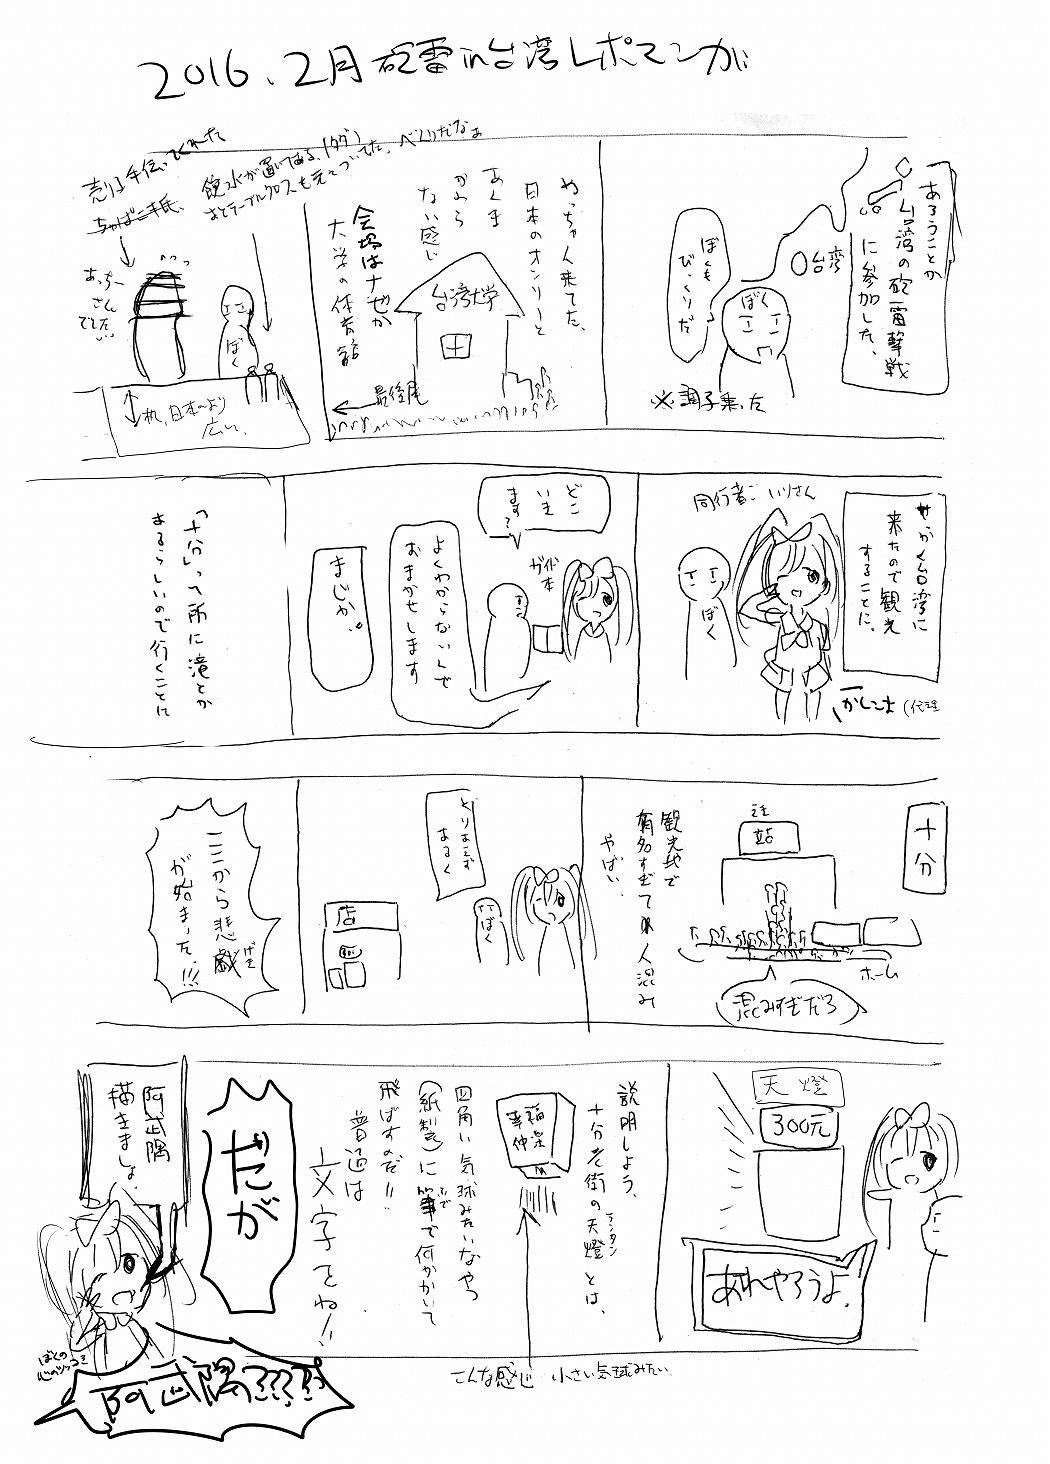 2016.2月砲雷in台湾レポマンガ
あろうことか
台湾の砲雷撃戦
に参加した、
台湾
ぼくも
びっくりだ
ぼく
※調子乗った
めっちゃ人来てた、
日本のオンリーと
あんま
かわら
ない感じ
会場はナゼか
大学の体育館
台湾大学
最後尾
売り子手伝ってくれた
飲水が置いてある、(タダ)
あとテーブルクロスも元々ついてた、べんりだなぁ
あっちー
さん
でした…
ぼく
机、日本より
広い、
せっかく台湾に
来たので観光
することに、
同行者ごいりさん
ぼく
かしこま(代理
どこ
いき
ます?
ガイド
本
よくわからないんで
おまかせします
まじか。
「十分」って所に滝とか
あるらしいので行くことに
十分
站
観光地で
有名すぎて人混み
やばい、
ホーム
混みすぎだろ
とりあえず
あるく
ぼく
店
ここから悲劇
が始まった!!!
天燈
300元
あれやろうよ!
説明しよう、
十分老街の天燈とは、
ランタン
四角い気球みたいなやつ
(紙製)に筆で何かかいて
ふで
飛ばすのだ!!
普通は
文字をね!!
こんな感じ 小さい気球みたい
だが
阿武隈
描きましょ、
ぼくの
心のツッコミ
阿武隈????